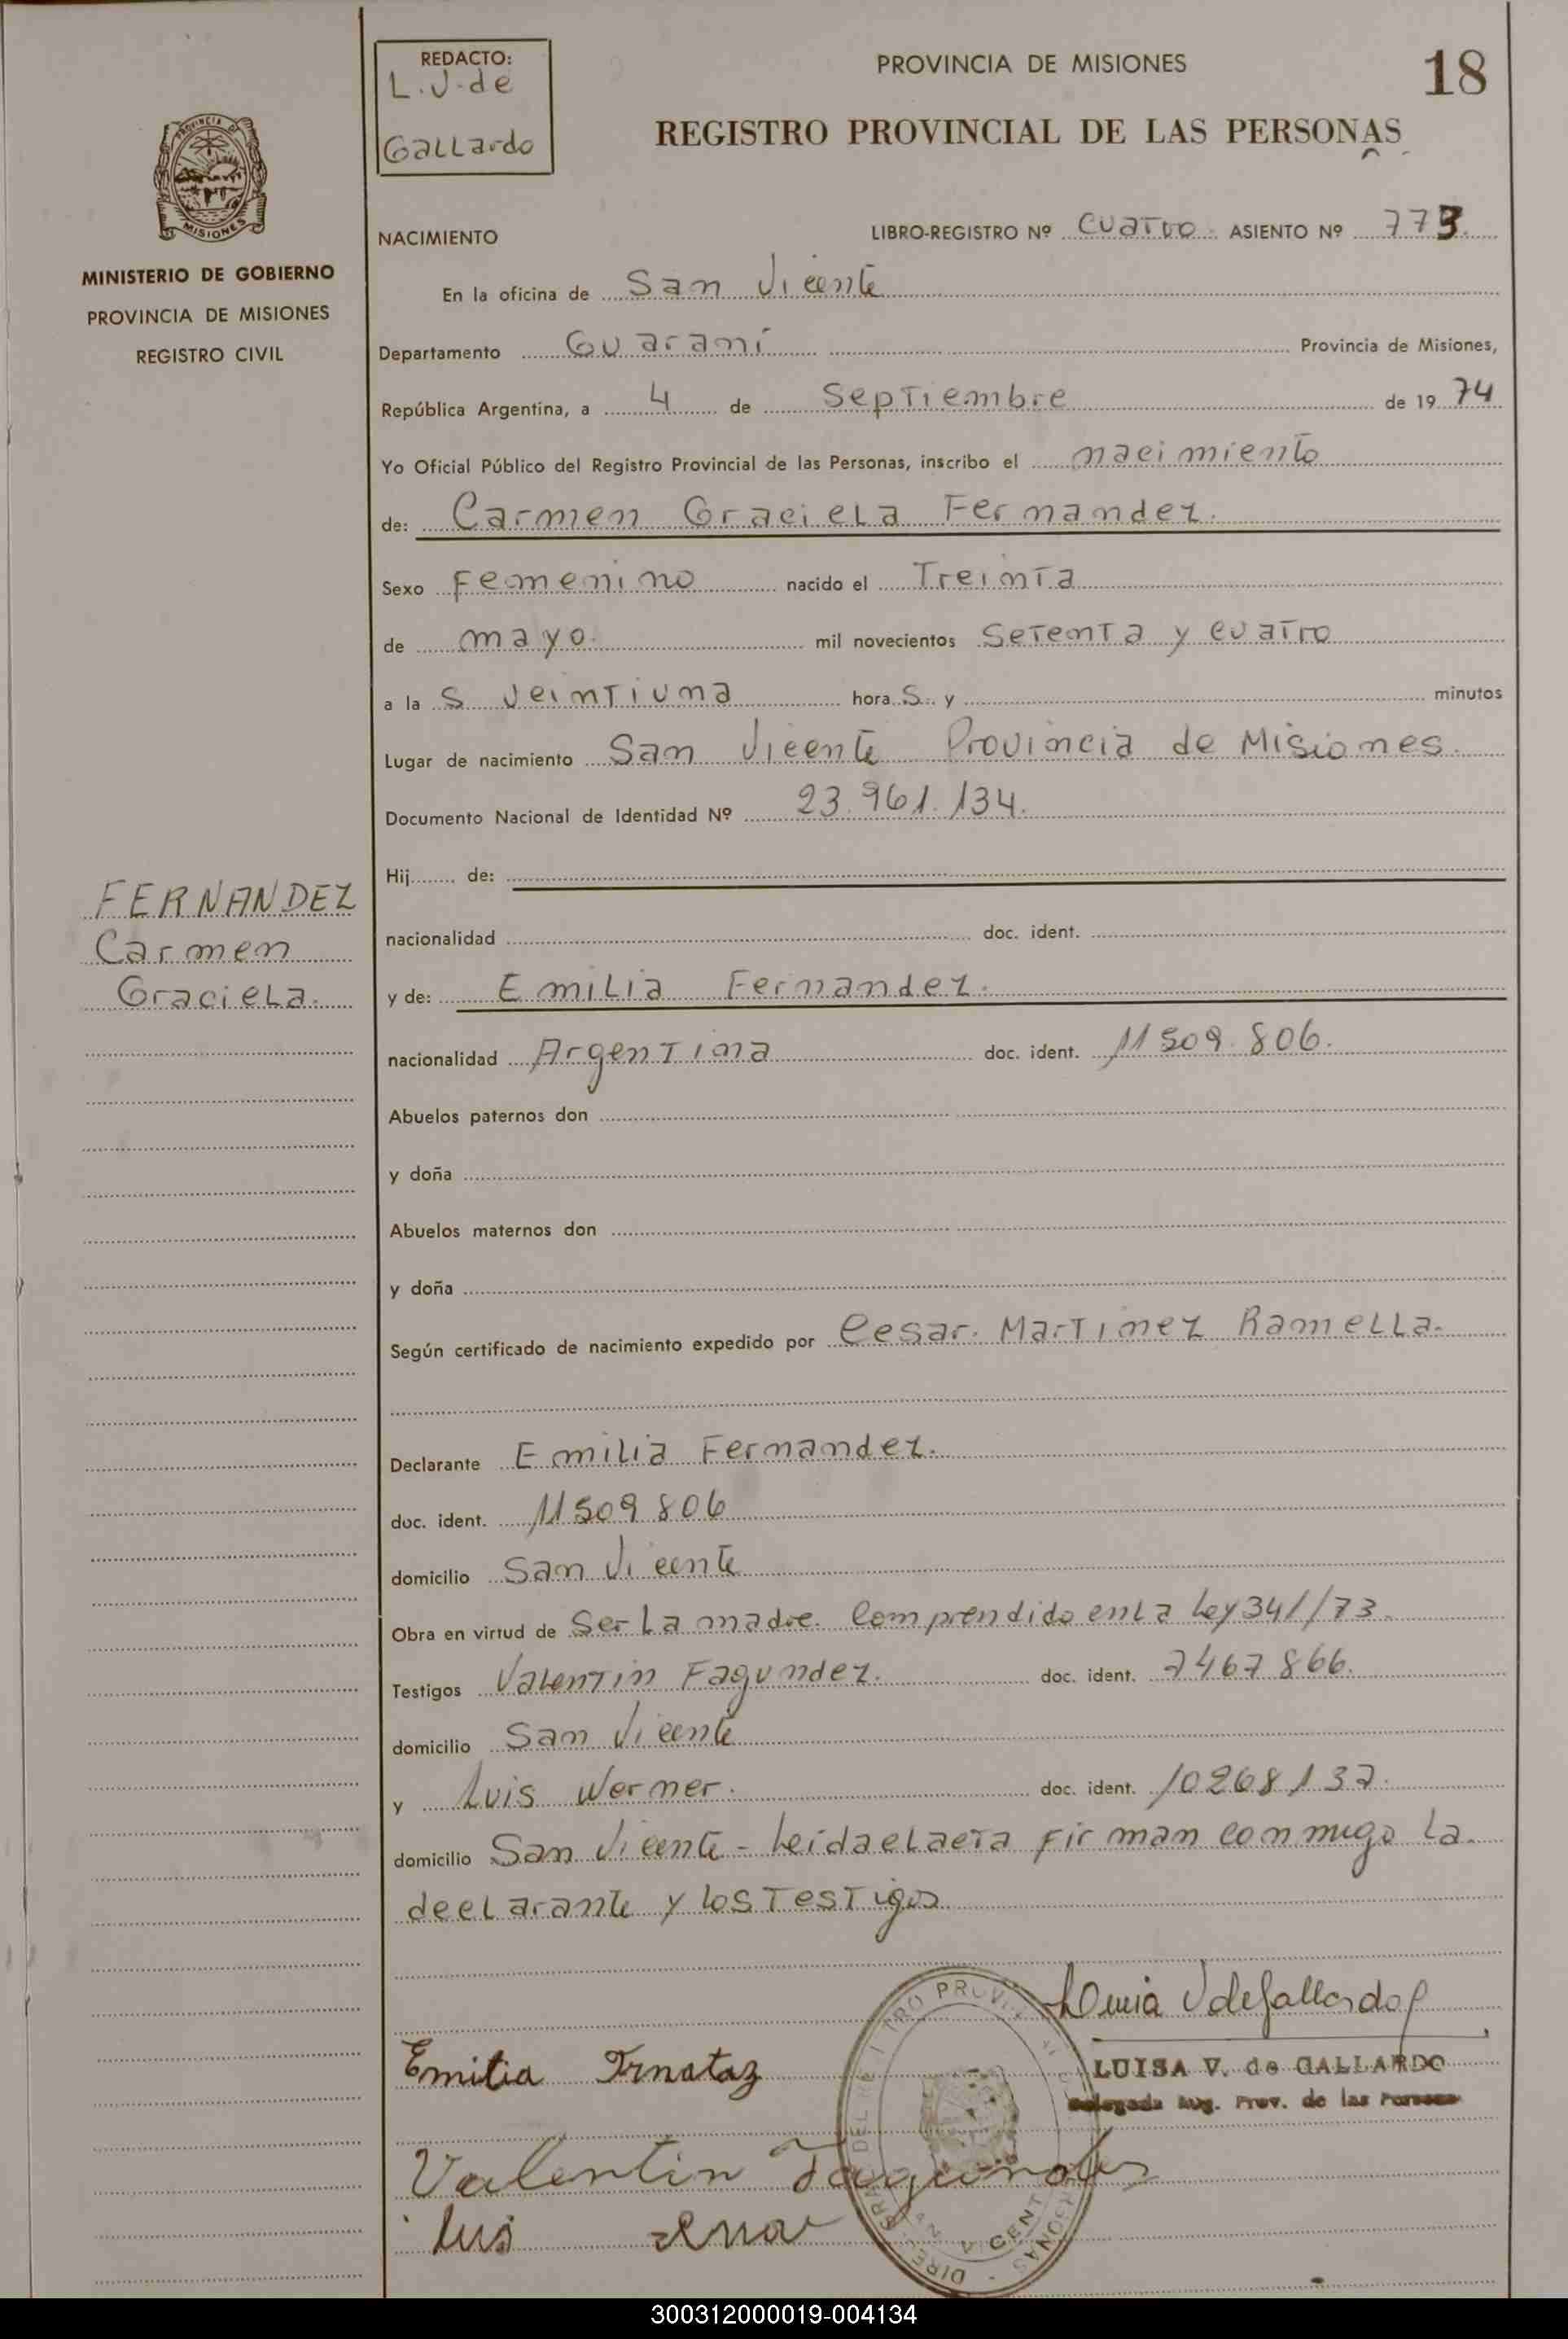 REDACTO:
L.V. de
Gallardo
PROVINCIA DE MISIONES
18
REGISTRO PROVINCIAL DE LAS PERSONAS
PROVINCIA DE
MISIONES
MINISTERIO DE GOBIERNO
PROVINCIA DE MISIONES
REGISTRO CIVIL
NACIMIENTO LIBRO-REGISTRO Nº Cuatro ASIENTO Nº 773.
En la oficina de San Vicente
Departamento Guaraní Provincia de Misiones,
República Argentina, a 4 de Septiembre de 1974
Yo Oficial Público del Registro Provincial de las Personas, inscribo el nacimiento
de: Carmen Graciela Fernandez.
Sexo Femenino nacido el Treinta
de mayo. mil novecientos Setenta y cuatro
a las veintiuna horas. y minutos
Lugar de nacimiento San Vicente Provincia de Misiones.
Documento Nacional de Identidad Nº 23.961.134.
Hij de:
FERNANDEZ
Carmen
Graciela.
nacionalidad doc. ident.
y de: Emilia Fernandez.
nacionalidad Argentina doc. ident. 11509.806.
Abuelos paternos don
y doña
Abuelos maternos don
y doña
Según certificado de nacimiento expedido por Cesar. Martinez Ramella.
Declarante Emilia Fernandez.
doc. ident. 11509806
domicilio San Vicente
Obra en virtud de Ser La madre. Comprendido en La Ley 341/73.
Testigos Valentin Fagundez. doc. ident. 7467866.
domicilio San Vicente
y Luis Werner. doc. ident. 10268137.
domicilio San Vicente - Leida el acta Firman conmigo La.
declarante y los Testigos
Luisa V de Gallardo
LUISA V. de GALLARDO
Delegada Reg. Prov. de las Personas
Emilia
Valentin Fagundes
Luis
300312000019-004134